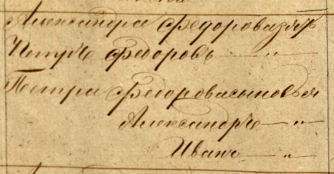 Александра Федорова здор
Петръ Федоровъ — "
Петра Федорова сыновья
Александръ — "
Иванъ — "